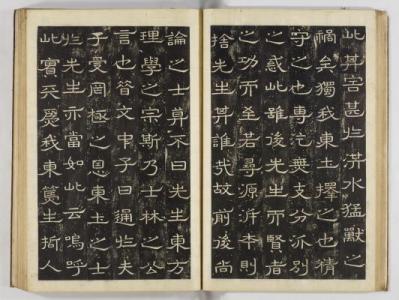 此其害甚於洪水猛獸之
禍矣獨我東土擇之也精
守之也專汔無支分派別
之惑此雖後先生而賢者
之功而至若尋源泝本則
捨先生其誰哉故前後尚
論之士莫不曰先生東方
理學之宗斯乃士林之公
言也昔文中子曰通於夫
子受罔極之恩東土之士
於先生亦當如此云嗚呼
此實天爲我東篤生斯人